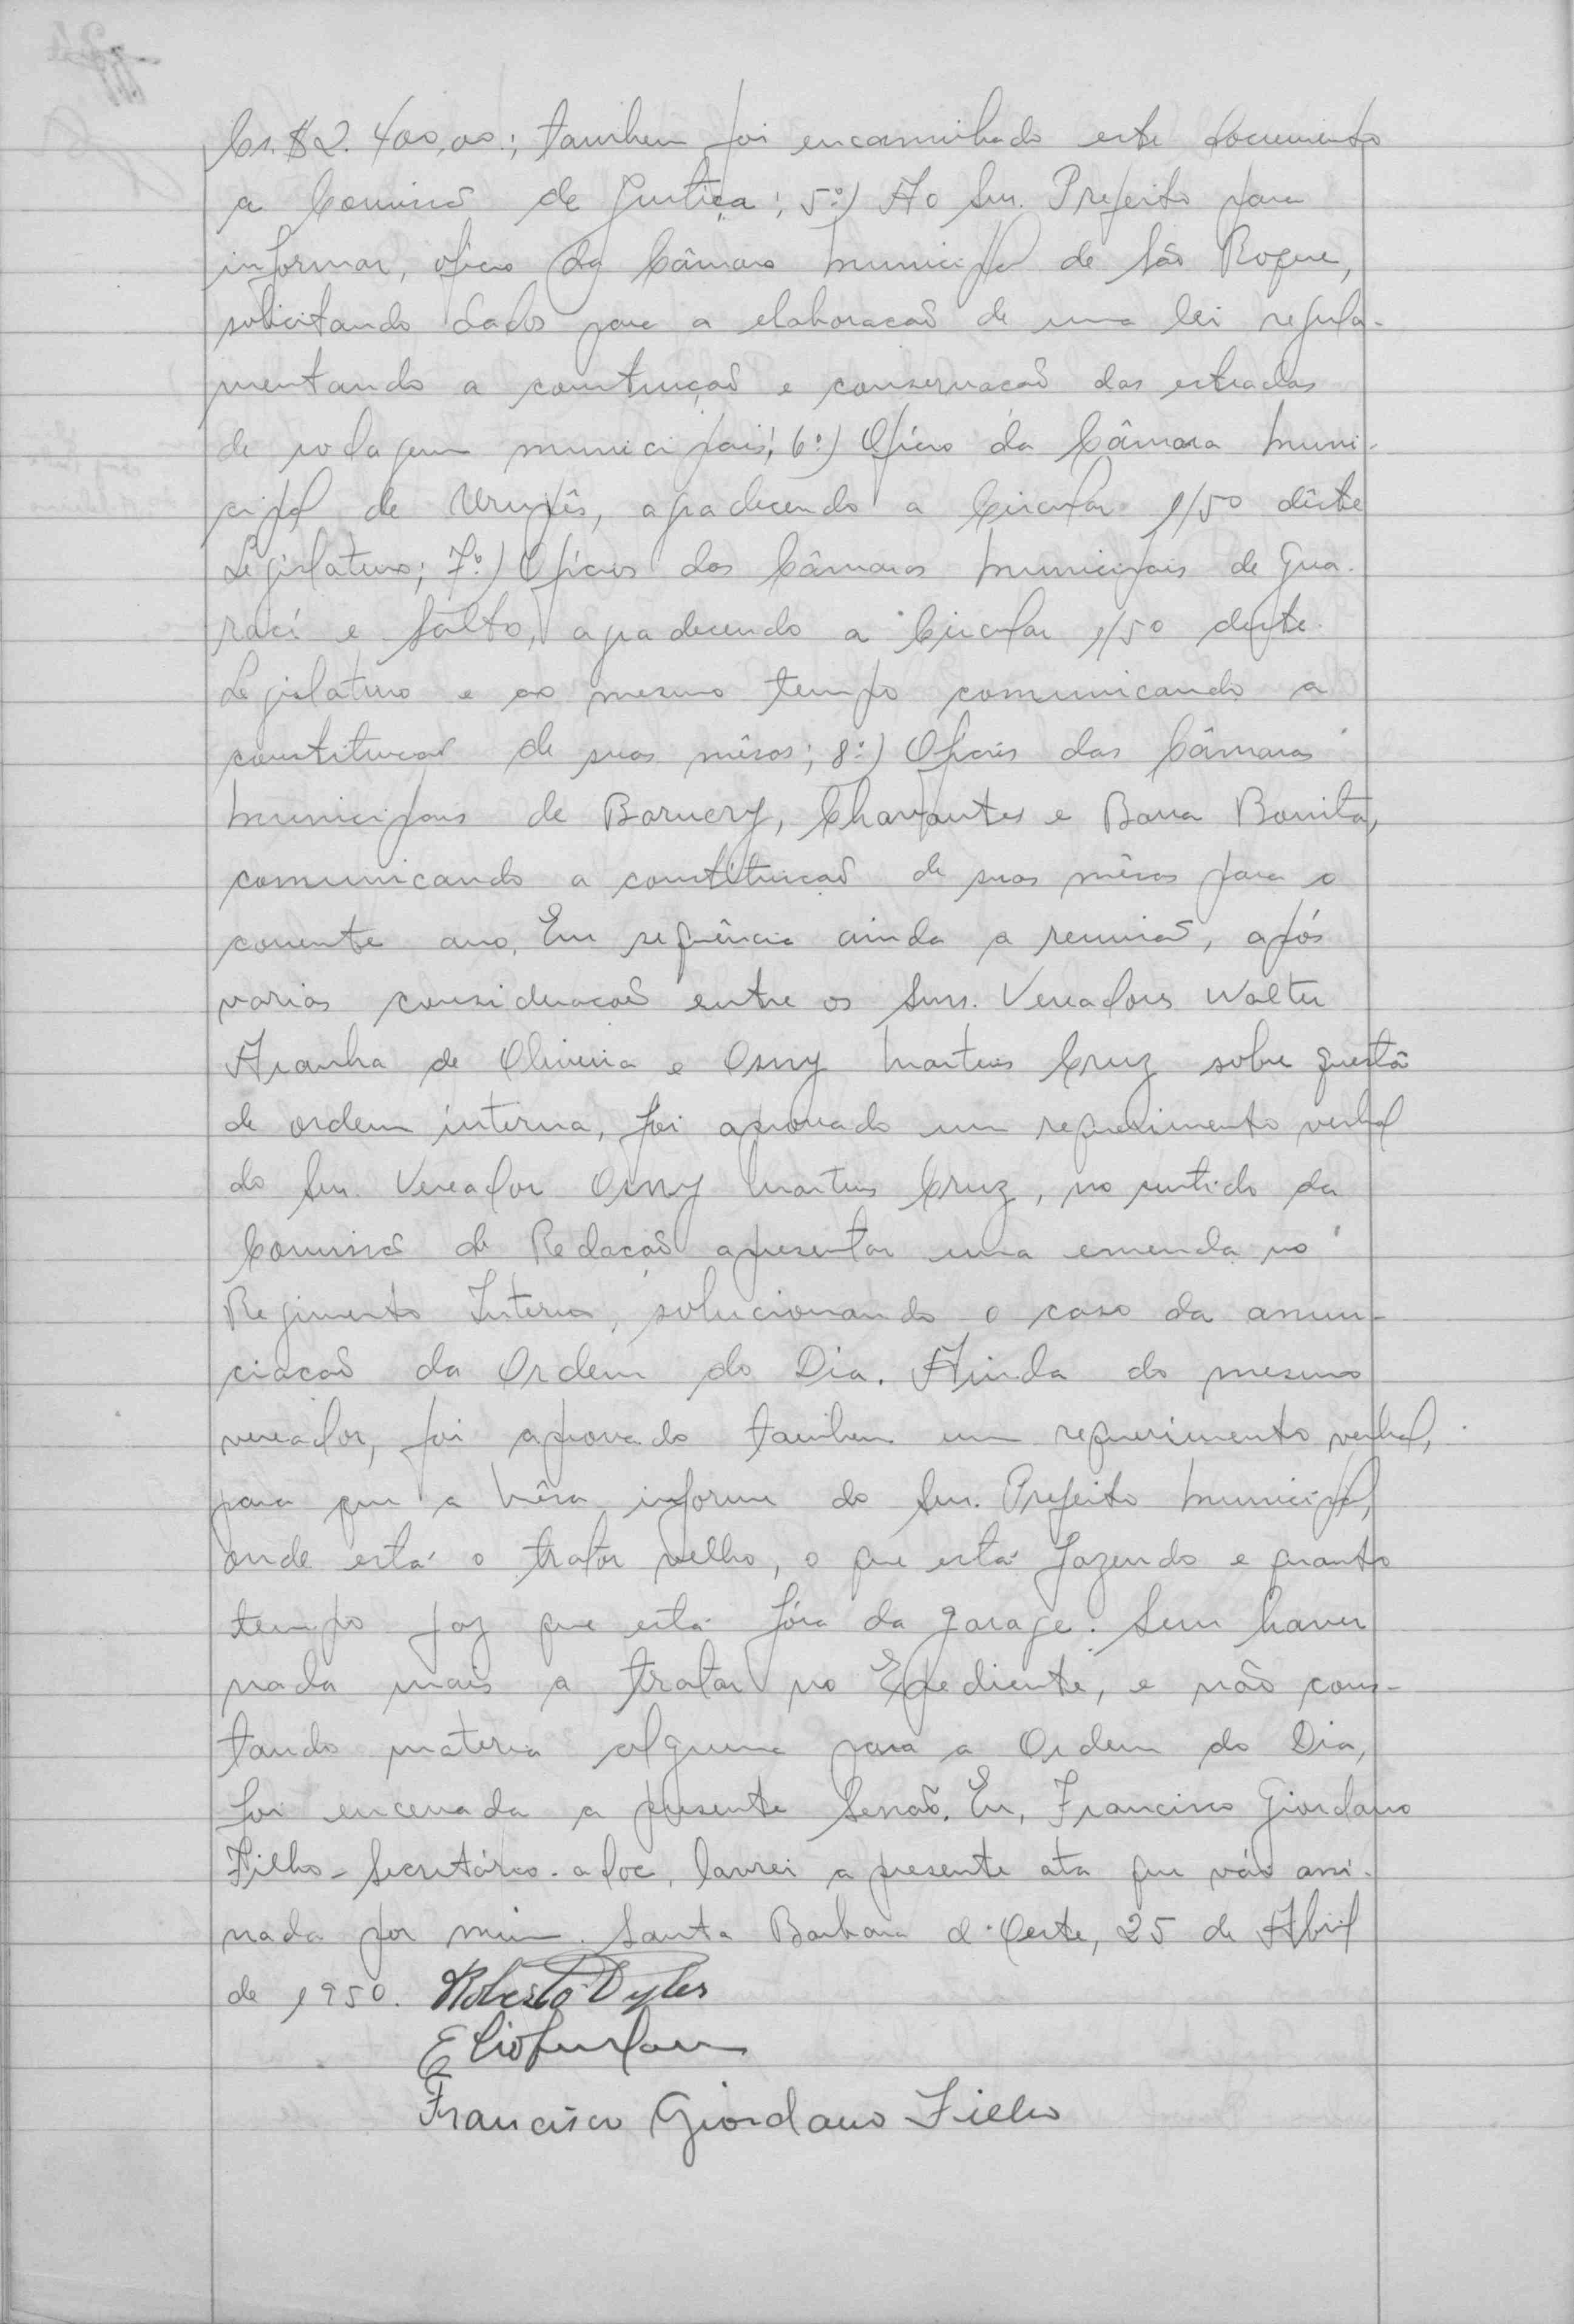 Cr.$2.400,00; tambem foi encaminhado este documento
a Comissã de Justiça; 5º) Ao Snr. Prefeito para
informar, oficio da Câmara Municipal de São Roque,
solicitando dados para a elaboracaõ de uma lei regula-
mentando a construçaõ e conservacaõ das estradas
de rodagem municipais; 6º) Ofício da Câmara Muni-
cipal de Urupês, agradecendo a Circular 1/50 dêste
Legislativo; 7º) Ofícios das Câmaras Municipais de Gua-
rací e Salto, agradecendo a Circular 1/50 deste
Legislativo e ao mesmo tempo comunicando a
constituicaõ de suas mêsas; 8º) Oficios das Câmaras
Municipais de Baruery, Chavantes e Barra Bonita,
comunicando a constituicaõ de suas mêsas para o
corrente ano. Em sequência ainda a reuniaõ, após
varias consideracaõ entre os Snrs. Vereadores Walter
Aranha de Oliveira e Osny Martins Cruz sobre questã
de ordem interna, foi aprovado um requerimento verbal
do Snr. Vereador Osny Martins Cruz, no sentido da
Comissã de Redacaõ apresentar uma emenda no
Regimento Interno, solucionando o caso da anun-
ciacaõ da Ordem do Dia. Ainda do mesmo
vereador, foi aprovado tambem um requerimento verbal,
para que a Mêsa informe do Snr. Prefeito Municipal,
onde está o trator velho, o que está fazendo e quanto
tempo faz que está fóra da garage. Sem haver
nada mais a tratar no Expediente, e não cons-
tando materia alguma para a Ordem do Dia,
foi encerrada a presente Sessaõ. Eu, Francisco Giordano
Filho - Secretário-adoc, lavrei a presente ata que vão assi-
nada por mim. Santa Barbara d'Oeste, 25 de Abril
de 1950. Roberto
Francisco Giordano Filho